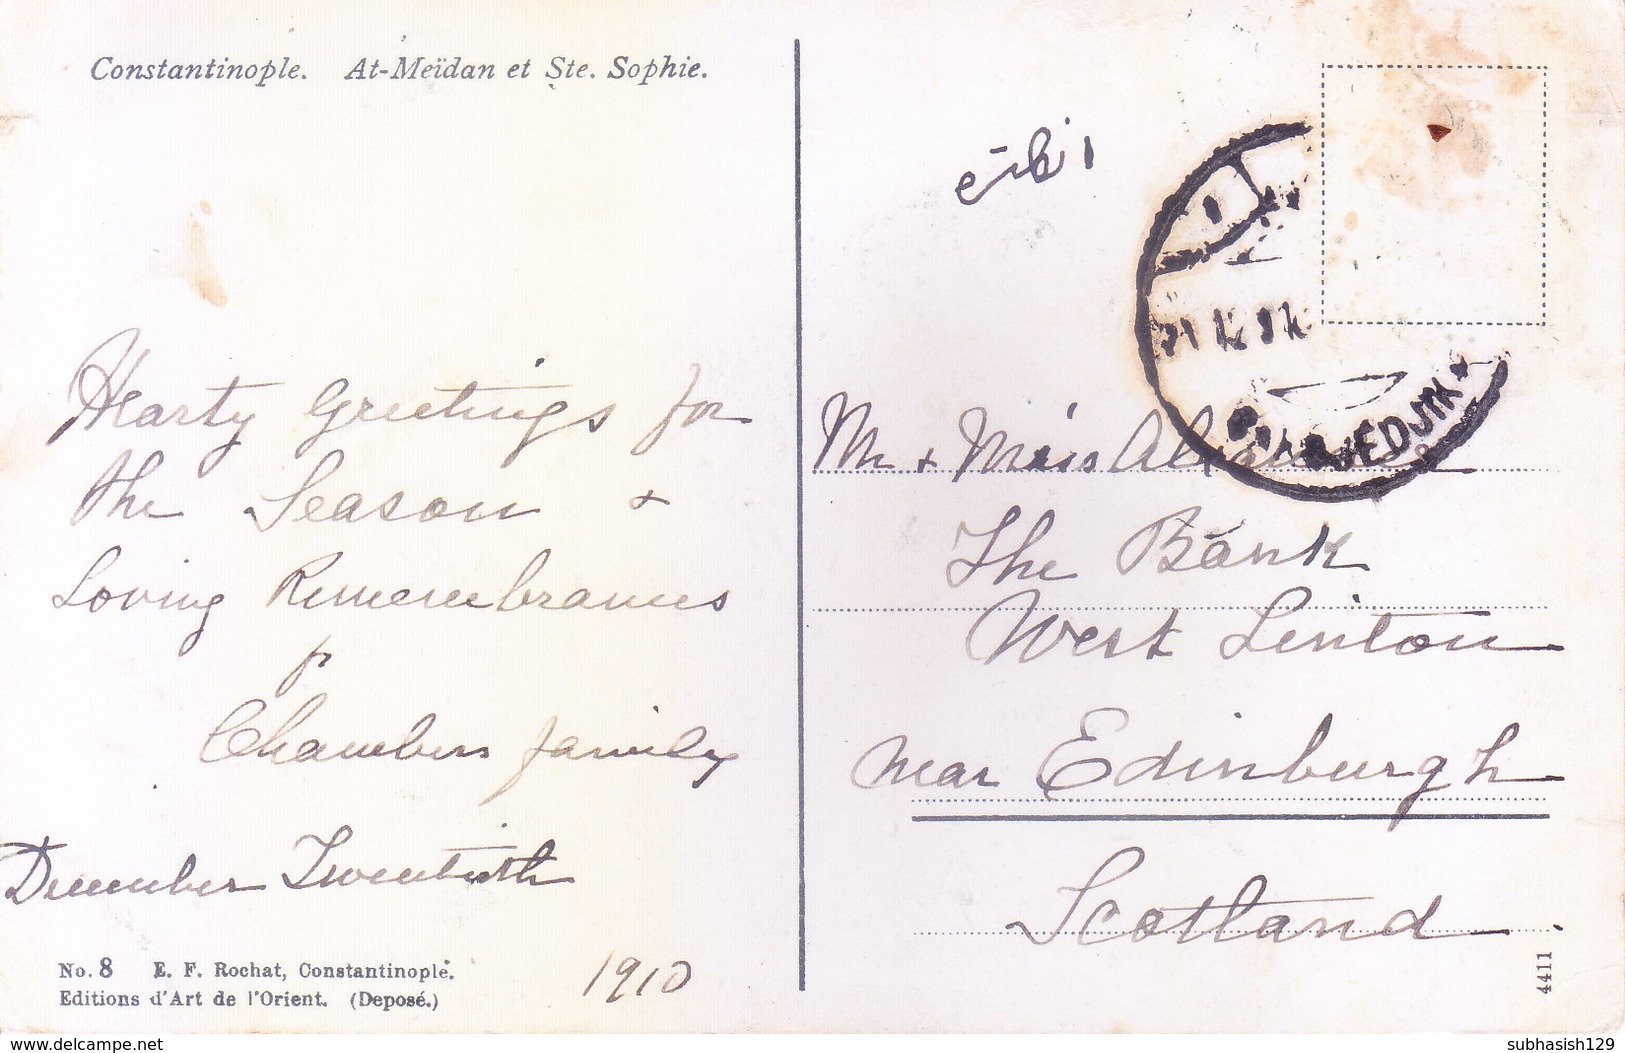 Constantinople. At-Meïdan et Ste. Sophie.
Hearty Greetings for
the Season &
Loving Remembrances
fr
Chambers family
December Twentieth
1910
No. 8 E. F. Rochat, Constantinople.
Editions d'Art de l'Orient. (Deposé.)
انكلتره
Mr & Miss
The Bank
West Linton
near Edinburgh
Scotland
4411
delcampe.net
subhasish129